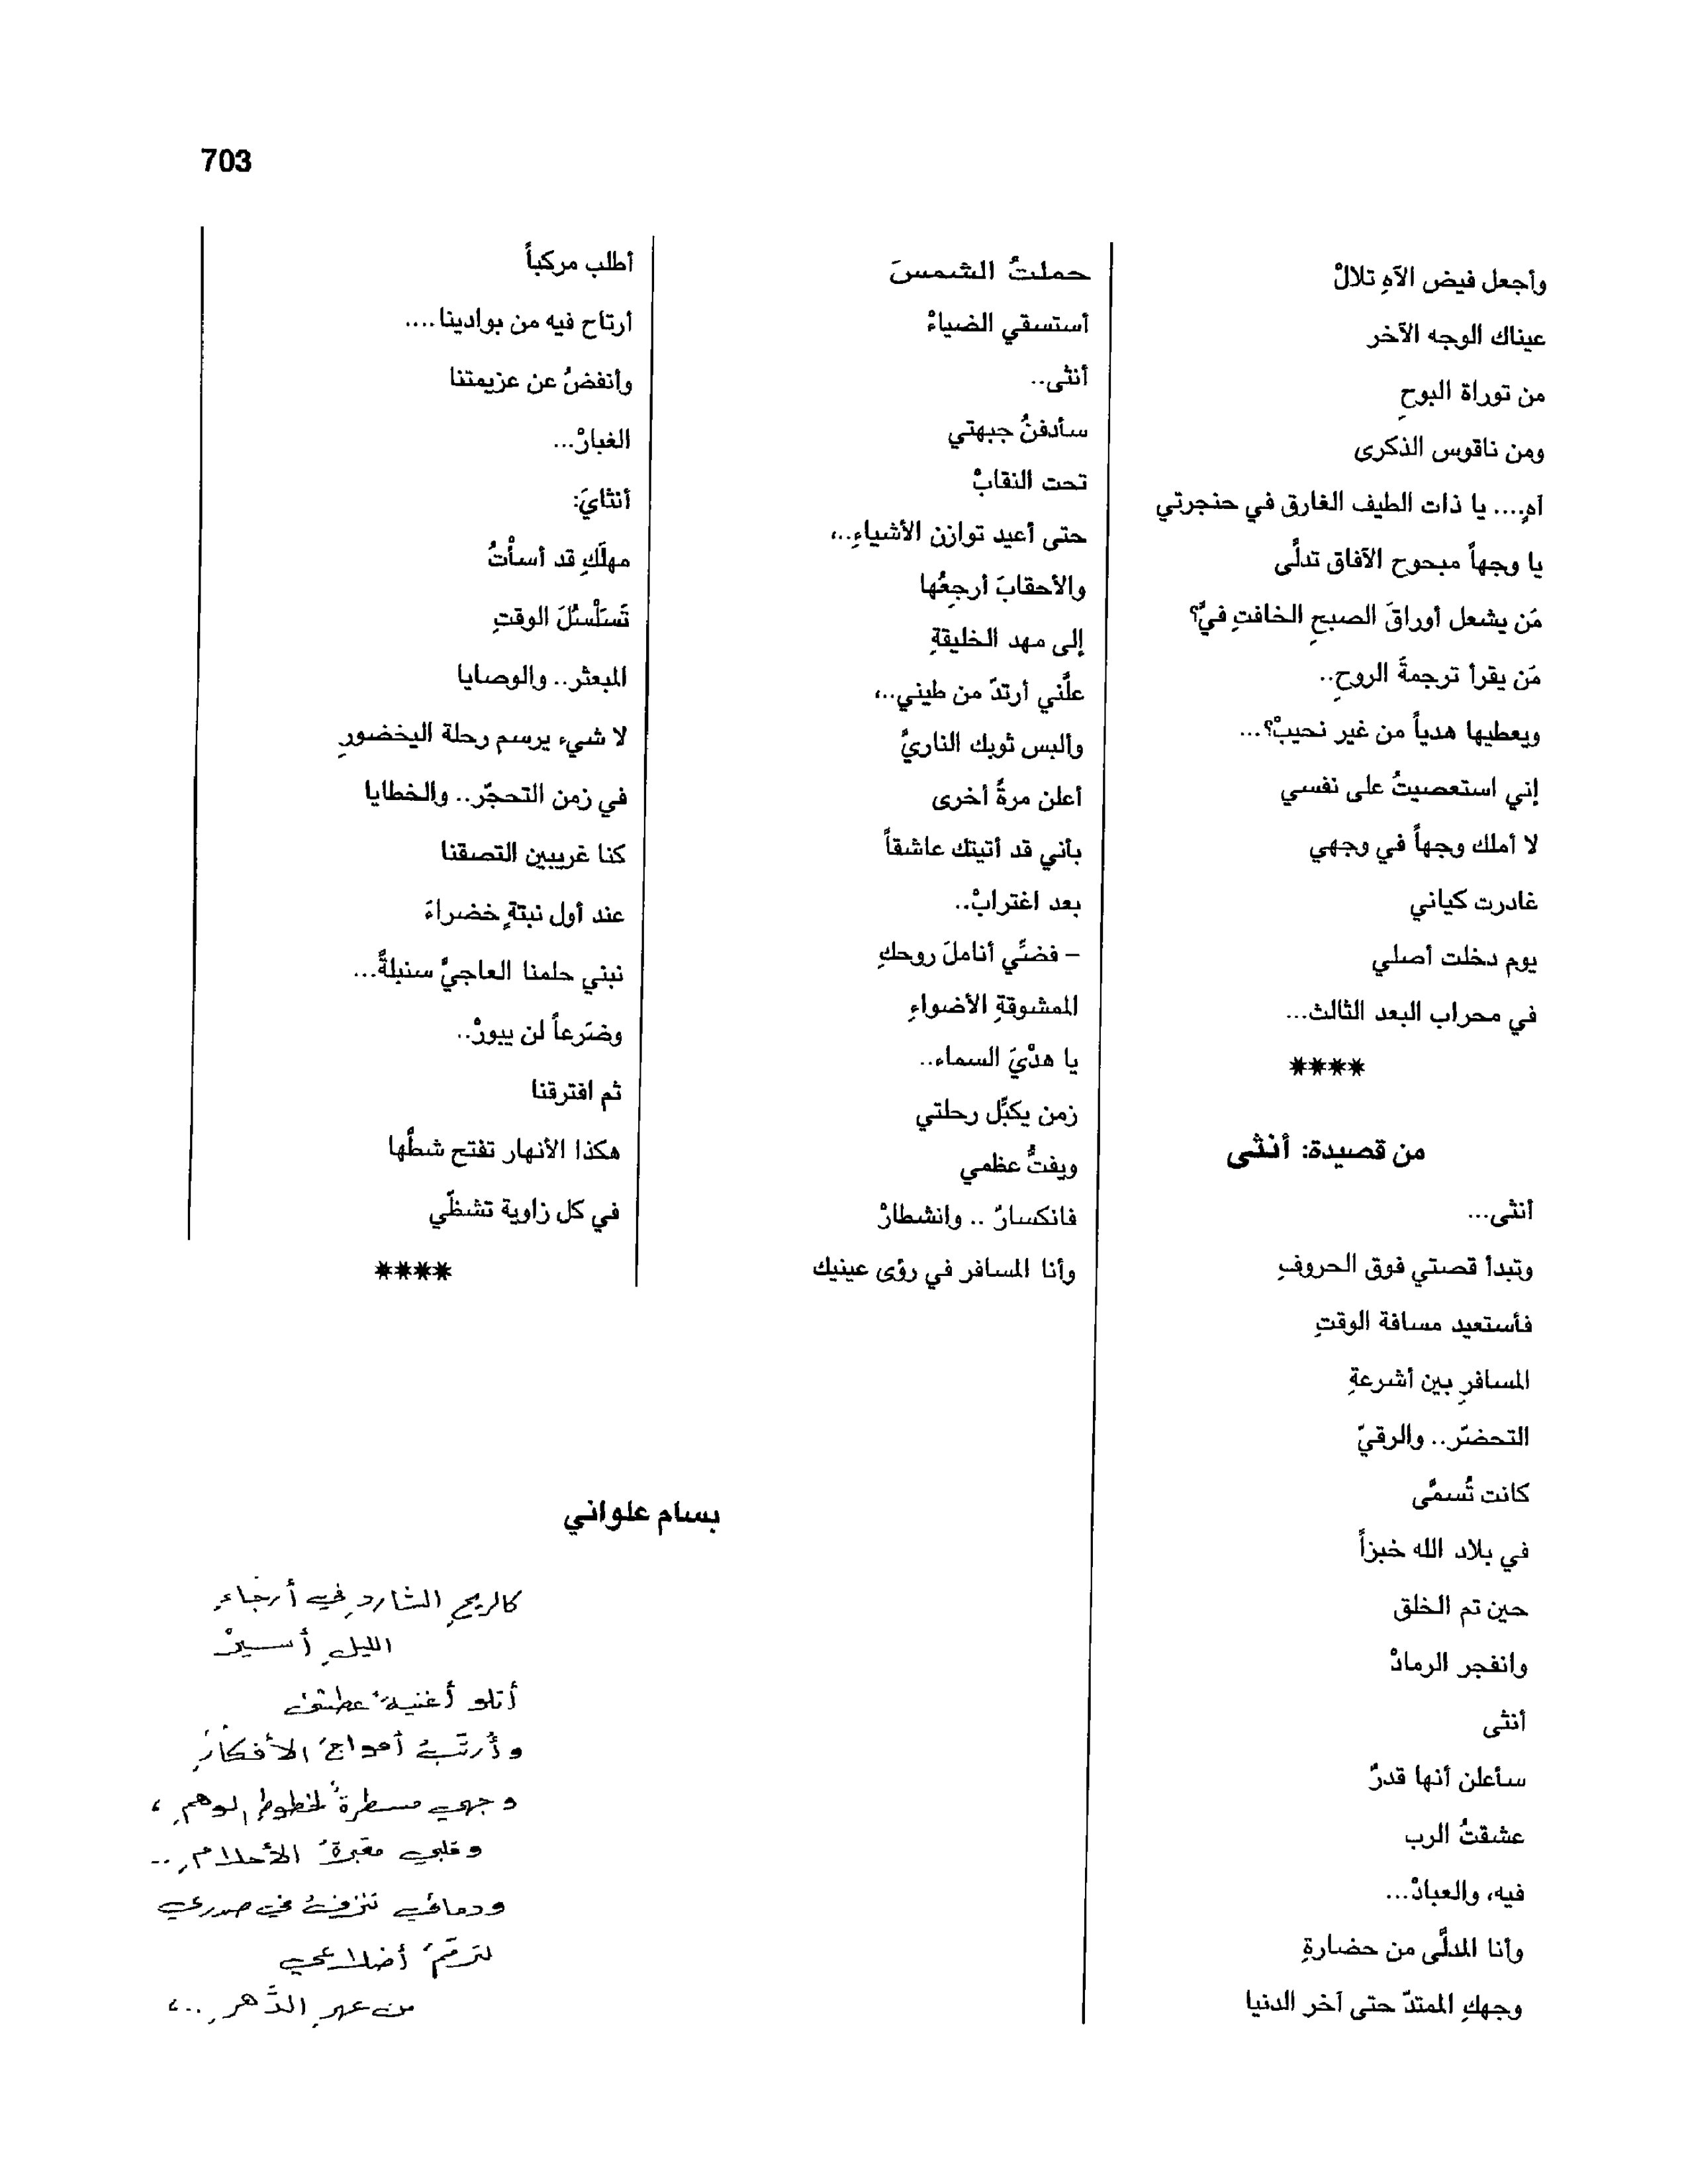 703
وأجعل فيض الآهِ تلالْ
عيناك الوجه الآخر
من توراة البوحِ
ومن ناقوس الذكرى
آهٍ.... يا ذات الطيف الغارق في حنجرتي
يا وجهاً مبحوح الآفاق تدلَّى
مَن يشعل أوراقَ الصبحِ الخافتِ فيَّ؟
مَن يقرأ ترجمةَ الروحِ..
ويعطيها هدياً من غير نحيبْ؟...
إني استعصيتُ على نفسي
لا أملك وجهاً في وجهي
غادرت كياني
يوم دخلت أصلي
في محراب البعد الثالث...
****
من قصيدة: أنثى
أنثى...
وتبدأ قصتي فوق الحروفِ
فأستعيد مسافة الوقتِ
المسافرِ بين أشرعةِ
التحضّر.. والرقيّ
كانت تُسمَّى
في بلاد الله خبزاً
حين تم الخلق
وانفجر الرمادْ
أنثى
سأعلن أنها قدرٌ
عشقتُ الرب
فيه، والعبادْ...
وأنا المدلَّى من حضارةِ
وجهكِ الممتدّ حتى آخر الدنيا
حملتُ الشمسَ
أستسقي الضياءْ
أنثى..
سأدفنُ جبهتي
تحت النقابْ
حتى أعيد توازن الأشياءِ..،
والأحقابَ أرجعُها
إلى مهد الخليقةِ
علَّني أرتدّ من طيني..،
وألبس ثوبك الناريَّ
أعلن مرةً أخرى
بأني قد أتيتك عاشقاً
بعد اغترابْ..
– فضّي أناملَ روحكِ
الممشوقةِ الأضواءِ
يا هدْيَ السماء..
زمن يكبِّل رحلتي
ويفتُّ عظمي
فانكسارٌ .. وانشطارْ
وأنا المسافر في رؤى عينيك
أطلب مركباً
أرتاح فيه من بوادينا....
وأنفضُ عن عزيمتنا
الغبارْ...
أنثايَ:
مهلَكِ قد أسأْتُ
تَسَلْسُلَ الوقتِ
المبعثر.. والوصايا
لا شيء يرسم رحلة اليخضورِ
في زمن التحجّر.. والخطايا
كنا غريبين التصقنا
عند أول نبتةٍ خضراءَ
نبني حلمنا العاجيَّ سنبلةً...
وضَرعاً لن يبورْ..
ثم افترقنا
هكذا الأنهار تفتح شطَّها
في كل زاوية تشظّي
****
بسام علواني
كالريحِ الشاردِ في أرجاءِ
الليلِ أسيرْ
أتلو أغنيةً عطشى
وأُرتّبُ أمواجَ الأفكارِ
وجهي مسطرةٌ لخطوطِ الوهمِ،
وقلبي مقبرةُ الأحلامِ..
ودمائي تنزفُ في صدري
لترمّمَ أضلاعي
من عهرِ الدَّهرِ..،